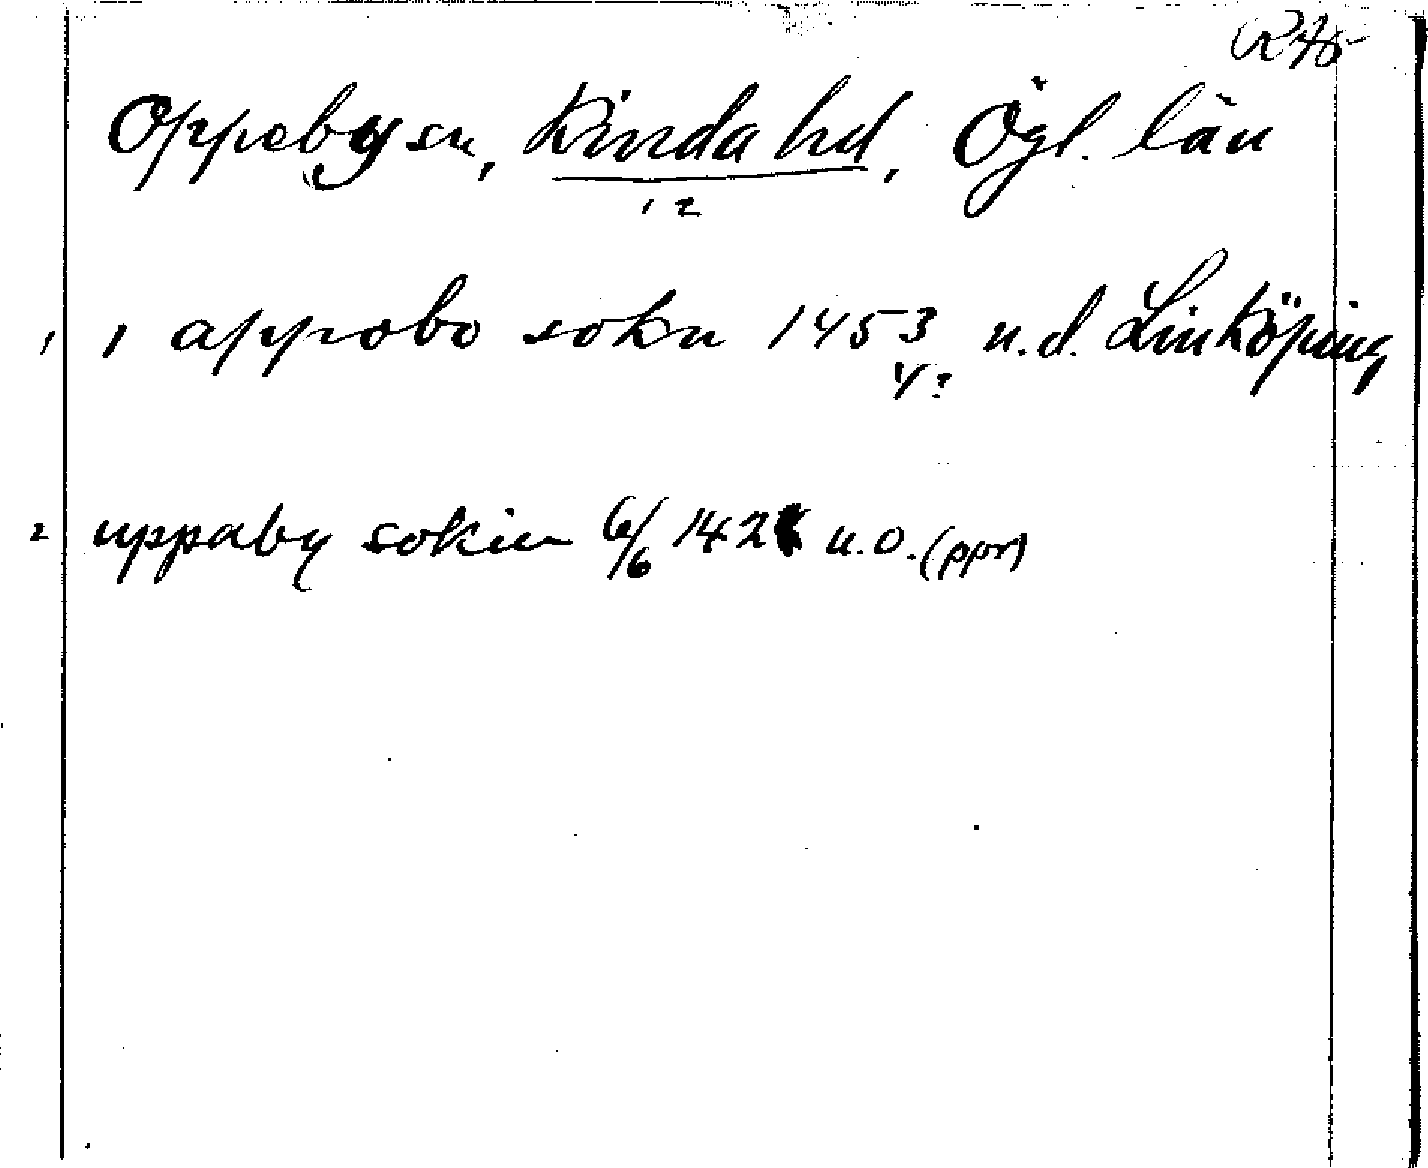 RAp
Oppeby sn, Kinda hd, Ögl. län
1 2
1 i appobo sokn 1453 u.d. Linköping
v?
2 uppaby sokin 6/6 142 u.o. (ppr)